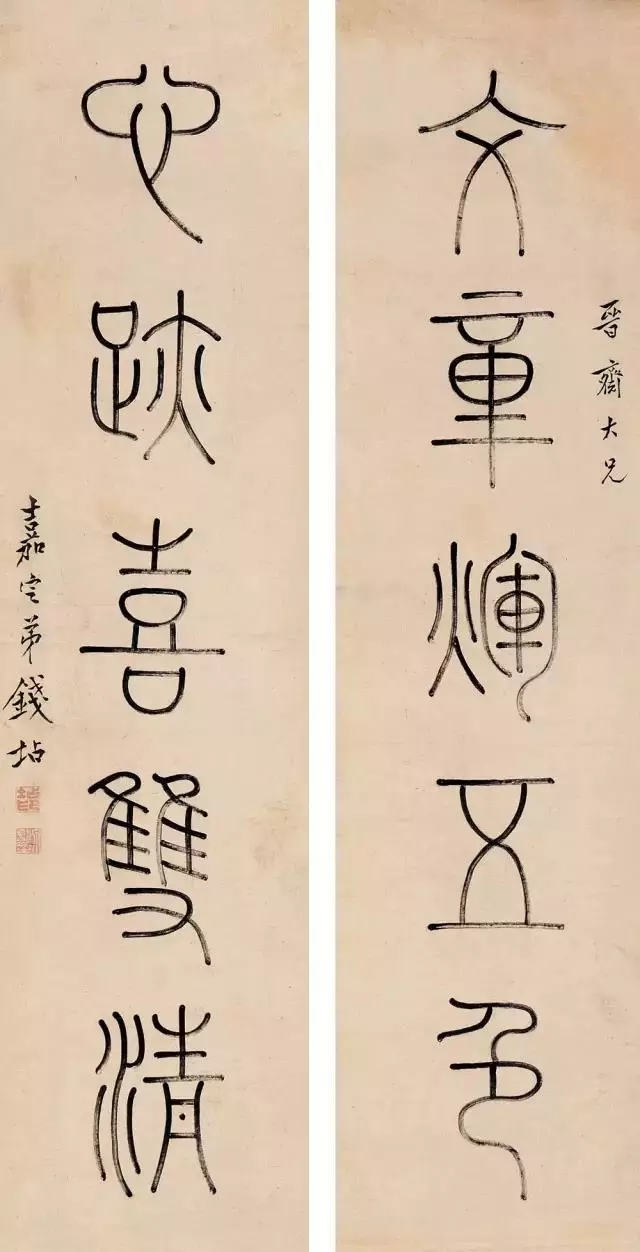 晉齋大兄
文章煇五色
心跡喜雙清
嘉定弟錢坫